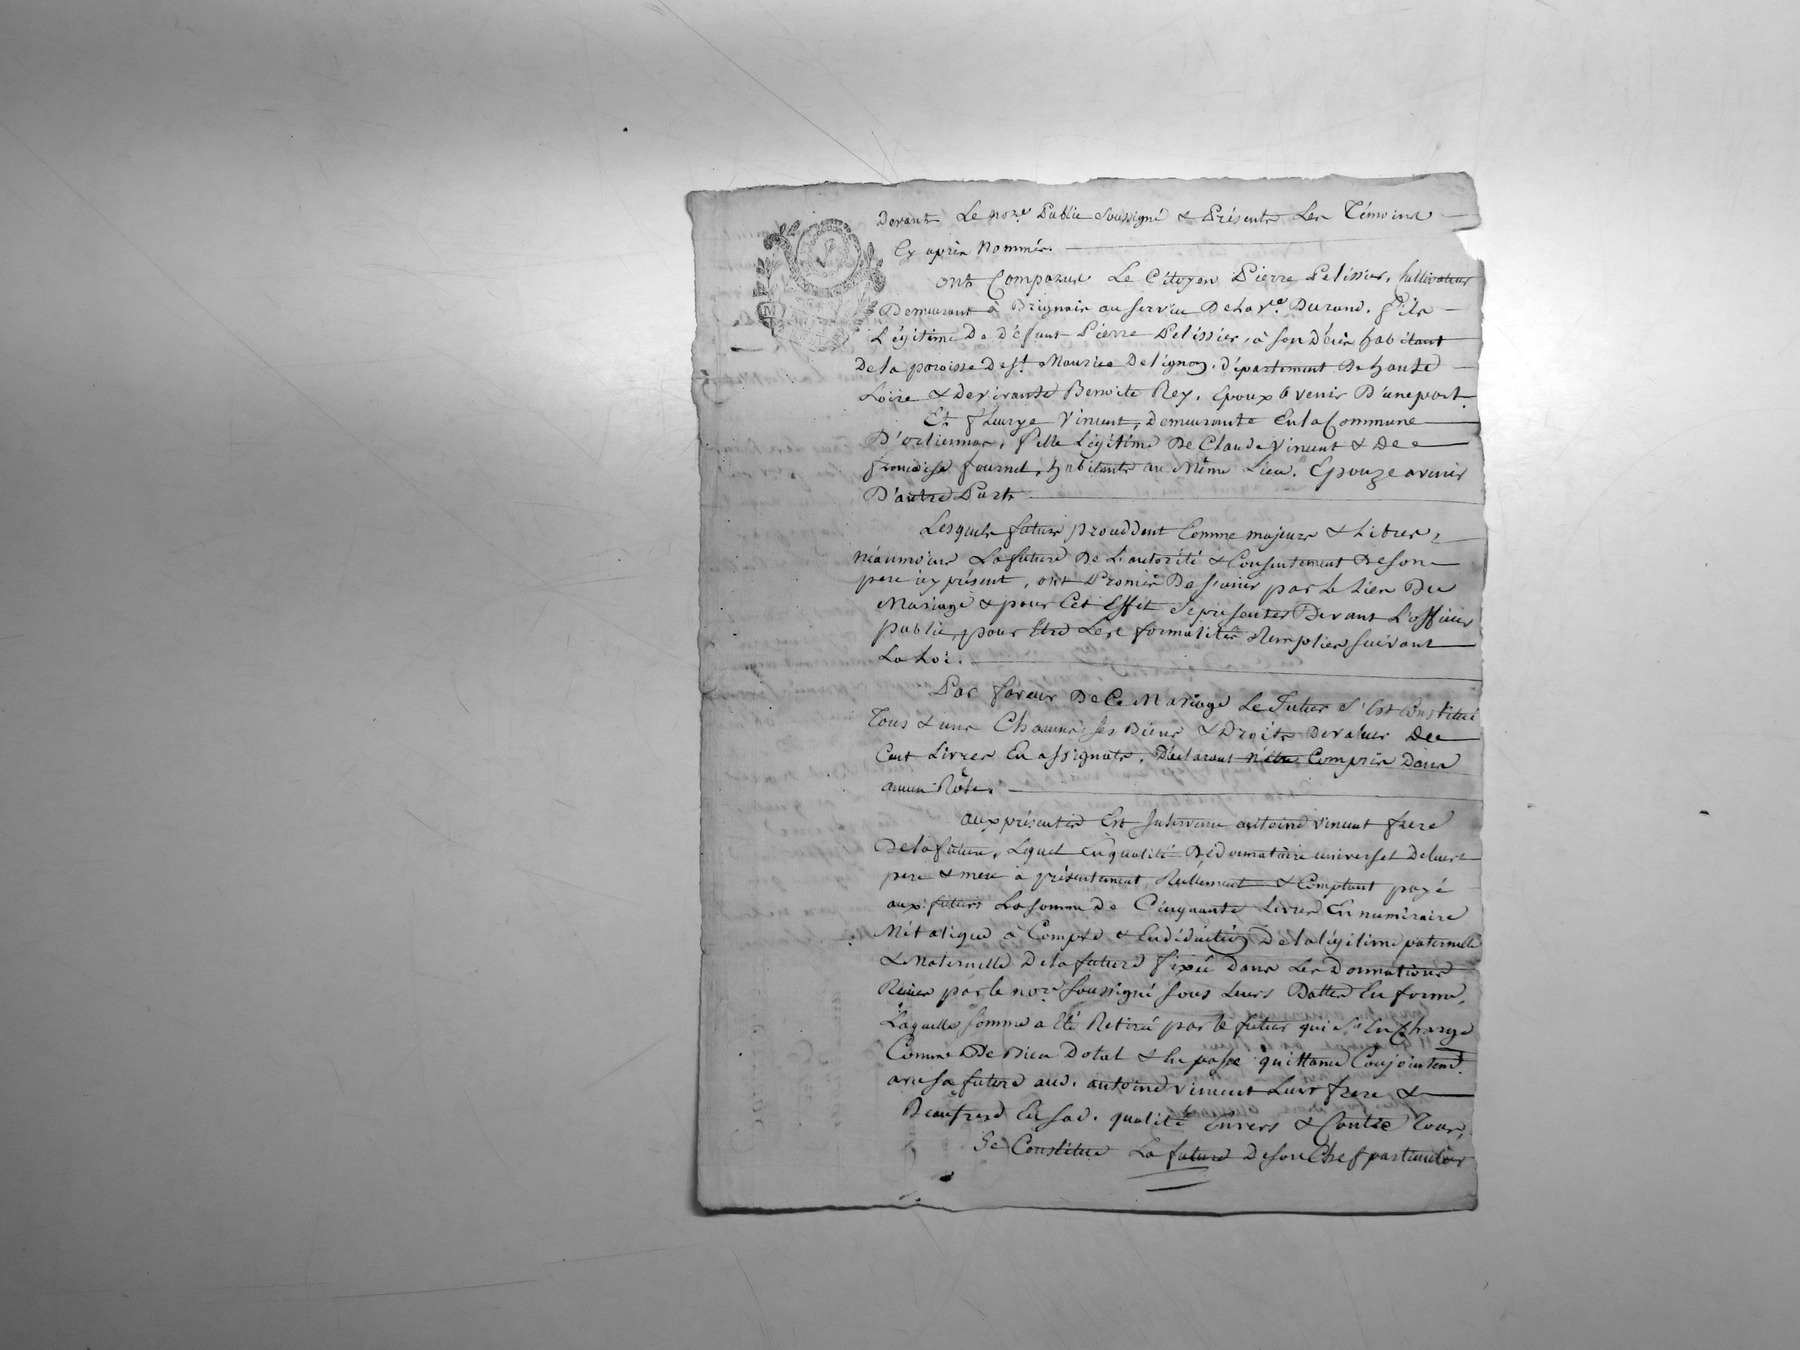 Devant Le nore Public Soussigné & Présents Les Témoins
Cy après Nommés.
ont Comparus Le Citoyen Pierre Pelissier, Cultivateur
Demeurant à Brignais au service De la Ve. Durand. Fils
Légitime De Défunt Pierre Pelissier, à son décès habitant
De la paroisse De St. Maurice De lignon, département De haute
Loire & De vivante Benoite Rey. Epoux à venir D'une part.
Et fleurye Vincent, Demeurante En la Commune
D'orliennas, fille Légitime De Claude Vincent & De
françoise fournel, habitants au Même Lieu. Epouze avenir
D'autre Part.
Lesquels futurs procèddent Comme majeurs & Libres,
néaumoins La future De L'autorité & Consentement De son
pere icy présent, ont Promis De s'unir par le Lien Du
Mariage & pour Cet Effet se présenter Devant L'officier
public, pour Etre Les formalités Remplies suivant
La Loi.
Par faveur De Ce Mariage Le futur s'Est Constitué
Tous & uns Chacuns ses Biens & Droits De valeur De
Cent Livres En assignats, Déclarant n'être Compris Dans
aucun Rôle.
aux présentes Est Intervenu antoine vincent frere
De la future, Lequel En qualité De donnataire universel De leurs
pere & mere à présentement, Réellement & Comptant payé
aux futurs La somme De Cinquante Livres En numéraire
Métalique à Compte & En déduction De la légitime paternelle
& Maternelle De la future fixée Dans Les Donnations
Reçues par le nore soussigné sous Leurs Dattes En forme,
Laquelle somme a Eté Retirée par le futur qui s'En Charge
Comme De Bien Dotal & En passe quittance Conjointemt.
avec sa future aud. antoine vincent Leur frere &
Beaufrere En sad. qualité Envers & Contre Tous,
Se Constitue La future De son Chef particulier